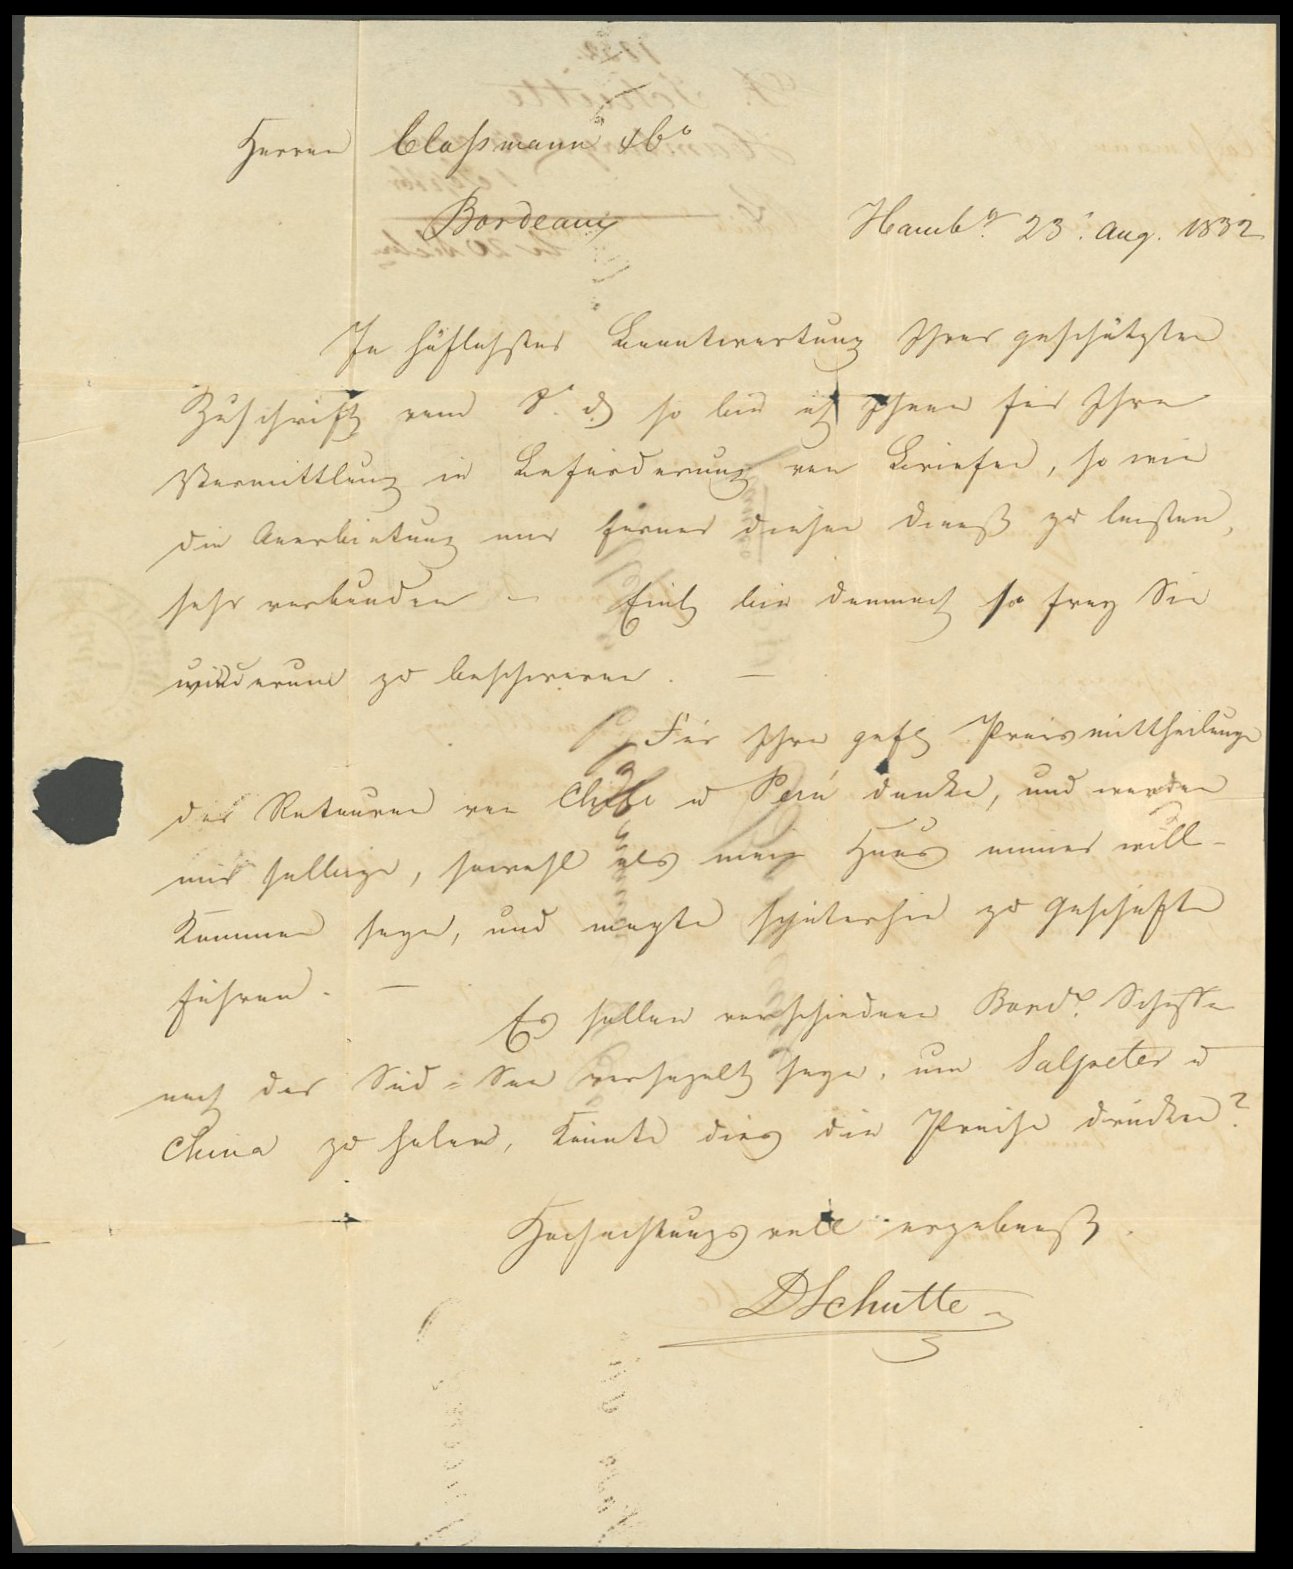 Herren Claßmann & Co
Bordeaux
Hambg. 23. Aug. 1832
In höflichster Beantwortung Ihrer geschätzten
Zuschrift vom 8. d so bin ich Ihnen für Ihre
Vermittlung in Beförderung von Briefen, so wie
die Anerbietung mir ferner diesen Dienst zu leisten,
sehr verbunden – Eint bin demnach so frey Sie
wiederum zu beschweren. —
Für Ihre gefl Preismittheilunge
der Retouren von Chile u Perú danke, und werden
mir selbige, sowohl als mein Haus immer will-
kommen seyn, und mögte späterhin zu Geschäfte
führen. —
Es sollen verschiedene Bordx Schiffe
nach der Süd-See versegelt seyn, um Salpeter u
China zu holen, könnte dies die Preise drücken?
Hochachtungsvoll ergebenst.
DSchutte